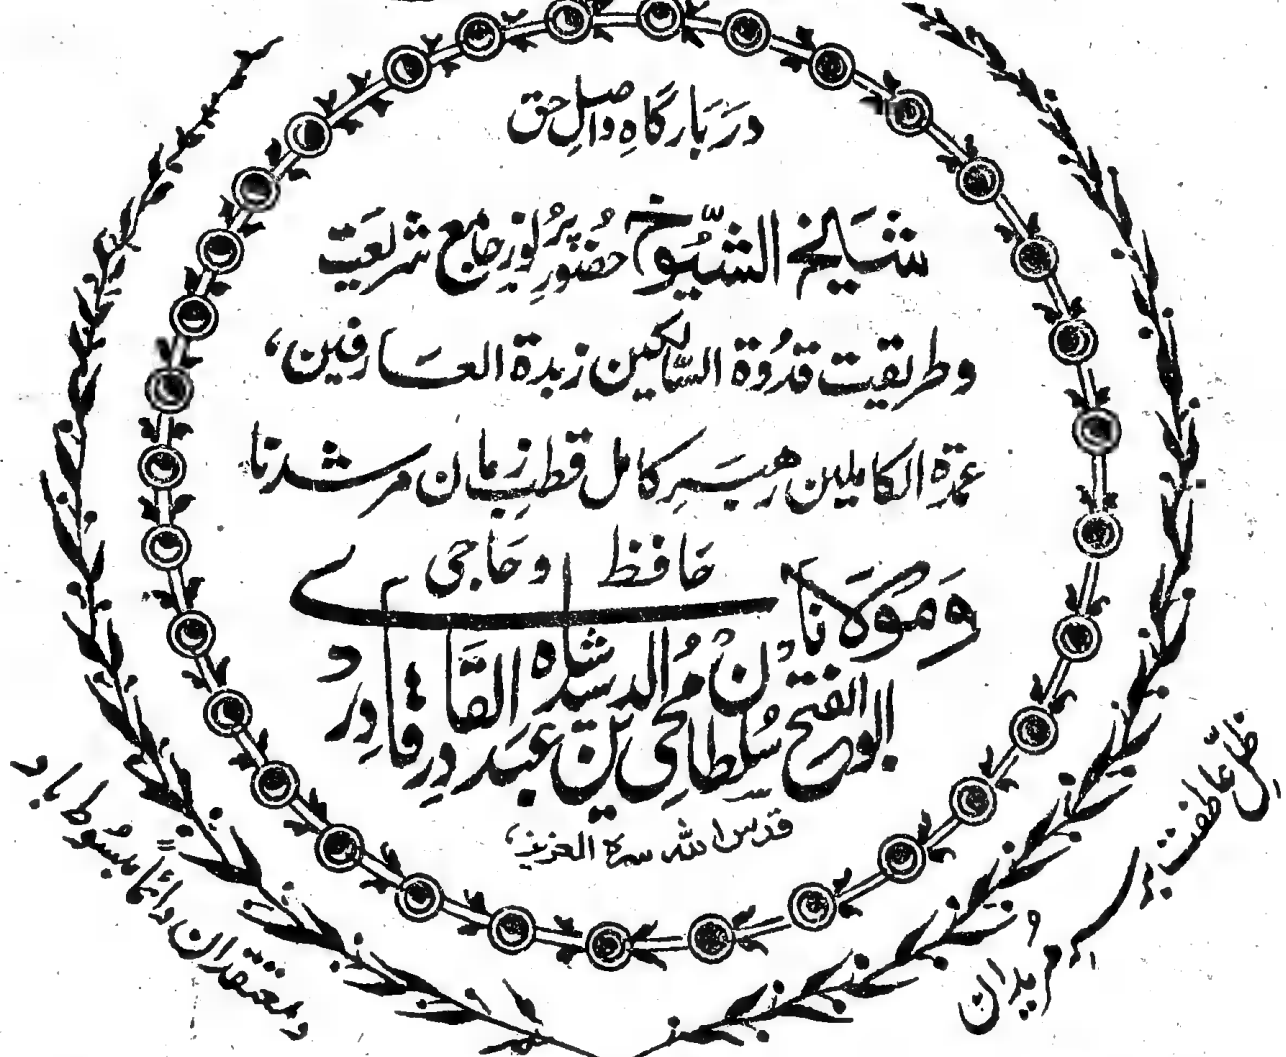 در بارگاہِ واصلِ حق
شیخ الشیُّوخ حضُور پُر نور جامع شریعت
وطریقت قدوُۃ السّالکین زبدۃ العارفین،
عمدۃ الکاملین رھبرِ کامل قطبِ زمان مرشدنا
ومولانا حافظ و حاجی
ابوالفتح سُلطان محُی الدین شاہ عبدالقادر قادری
قدس اللہ سرہ العزیز،
ظلِّ عاطفت بر سرِ مریدان و
معتقدان دائماً مبسُوط باد